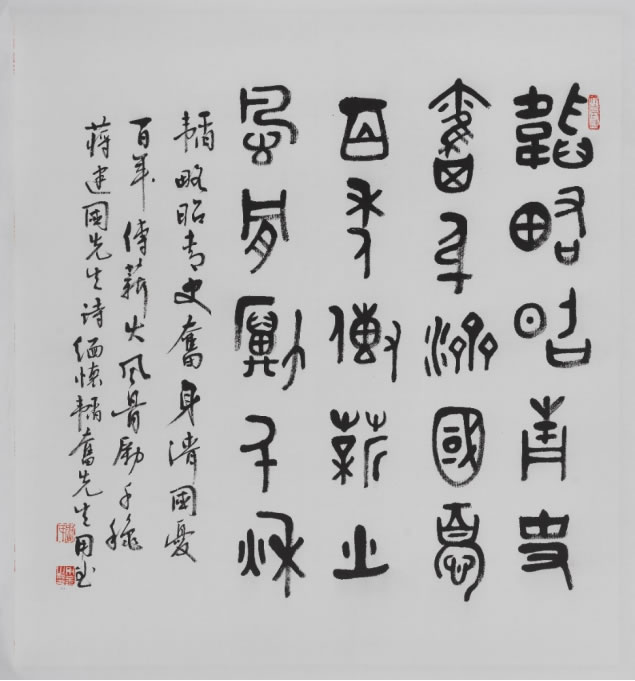 韬略昭青史
奋身济国忧
百年传薪火
风骨励千秋
韬略昭青史奋身济国忧
百年传薪火风骨励千秋
蒋建国先生诗缅怀韬奋先生